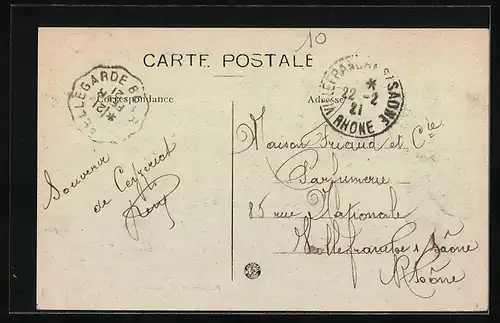 10
CARTE POSTALE
BELLEGARDE B
21
Correspondance
Adresse
VILLEFRANCHE S/ SAONE
*
22 - 2
21
RHONE
Souvenir
de Ceyzeriat
Maison Friaud et Cie
Parfumerie
85 rue Nationale
Villefranche s Saône
Rhône